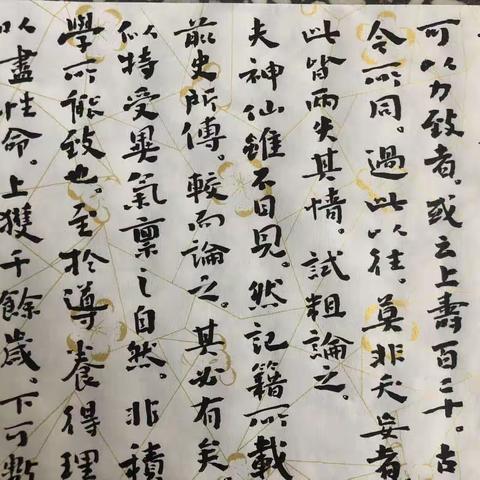 可以力致者。或云上壽百二十。古
今所同。過此以往。莫非夭妄者
此皆兩失其情。試粗論之。
夫神仙雖不目見。然記籍所載
前史所傳。較而論之。其必有矣
似特受異氣稟之自然。非積
學所能致也。至於導養得理
以盡性命。上獲千餘歲。下可數